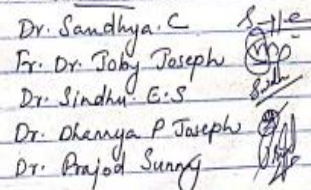 Dr. Sandhya. C
Fr. Dr. Joby Joseph
Dr. Sindhu. E.S
Dr. Dhannya P Joseph
Dr. Prajod Sunny